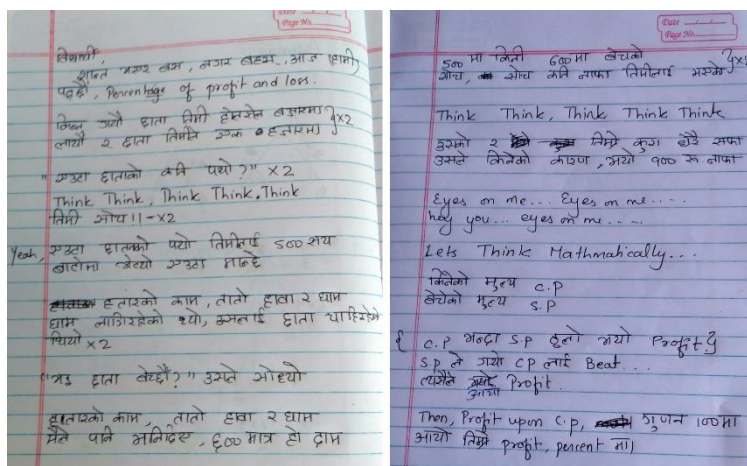 Date
Page No.
विद्यार्थी,
शान्त भएर बस, नगर बहस.. आज हामी
पढ्छौं, Percentage of profit and loss.
किन्न गयौ छाता तिमी होमसेल बजारमा
लायौ २ छाता तिमीले एक हजारमा } x2
"एउटा छाताको कति पर्यो?" x2
Think Think, Think Think, Think
तिमी सोच ।। - x2
Yeah, एउटा छाताको पर्यो तिमीलाई 500 सय
बाटोमा भेट्यो एउटा मान्छे
हतारको काम, तातो हावा र घाम
घाम लागिरहेको थ्यो, उसलाई छाता चाहिरहेको
थियो x2
"भाइ छाता बेच्छौ?" उसले सोध्यो
हतारको काम, तातो हावा र घाम
मैले पनि भनिदिएँ, ६०० मात्र हो दाम
Date
Page No.
500 मा किनी 600 मा बेचेको
सोच, सोच कति नाफा तिमीलाई भएको } x2
Think Think, Think Think Think
उसको र तिम्रो कुरा धेरै सफा
उसले किनेको कारण, भयो १०० रू नाफा
Eyes on me... Eyes on me....
hey you... eyes on me.....
Lets Think Mathmahically...
किनेको मुल्य C.P
बेचेको मुल्य S.P
{ C.P भन्दा S.P ठूलो भयो Profit }
S.P ले गर्यो CP लाई Beat...
त्यसैले आयो Profit.
Then, Profit upon C.p, गुणन 100मा
आयो तिम्रो profit, percent मा।